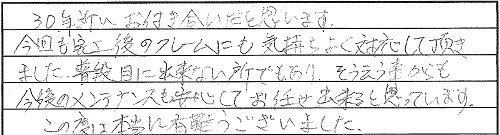 30年近いお付き合いだと思います。
今回も完工後のクレームにも気持ちよく対応して頂き
ました。普段目に出来ない所でもあり、そうゆう事からも
今後のメンテナンスも安心してお任せ出来ると思っています。
この度は本当に有難うございました。